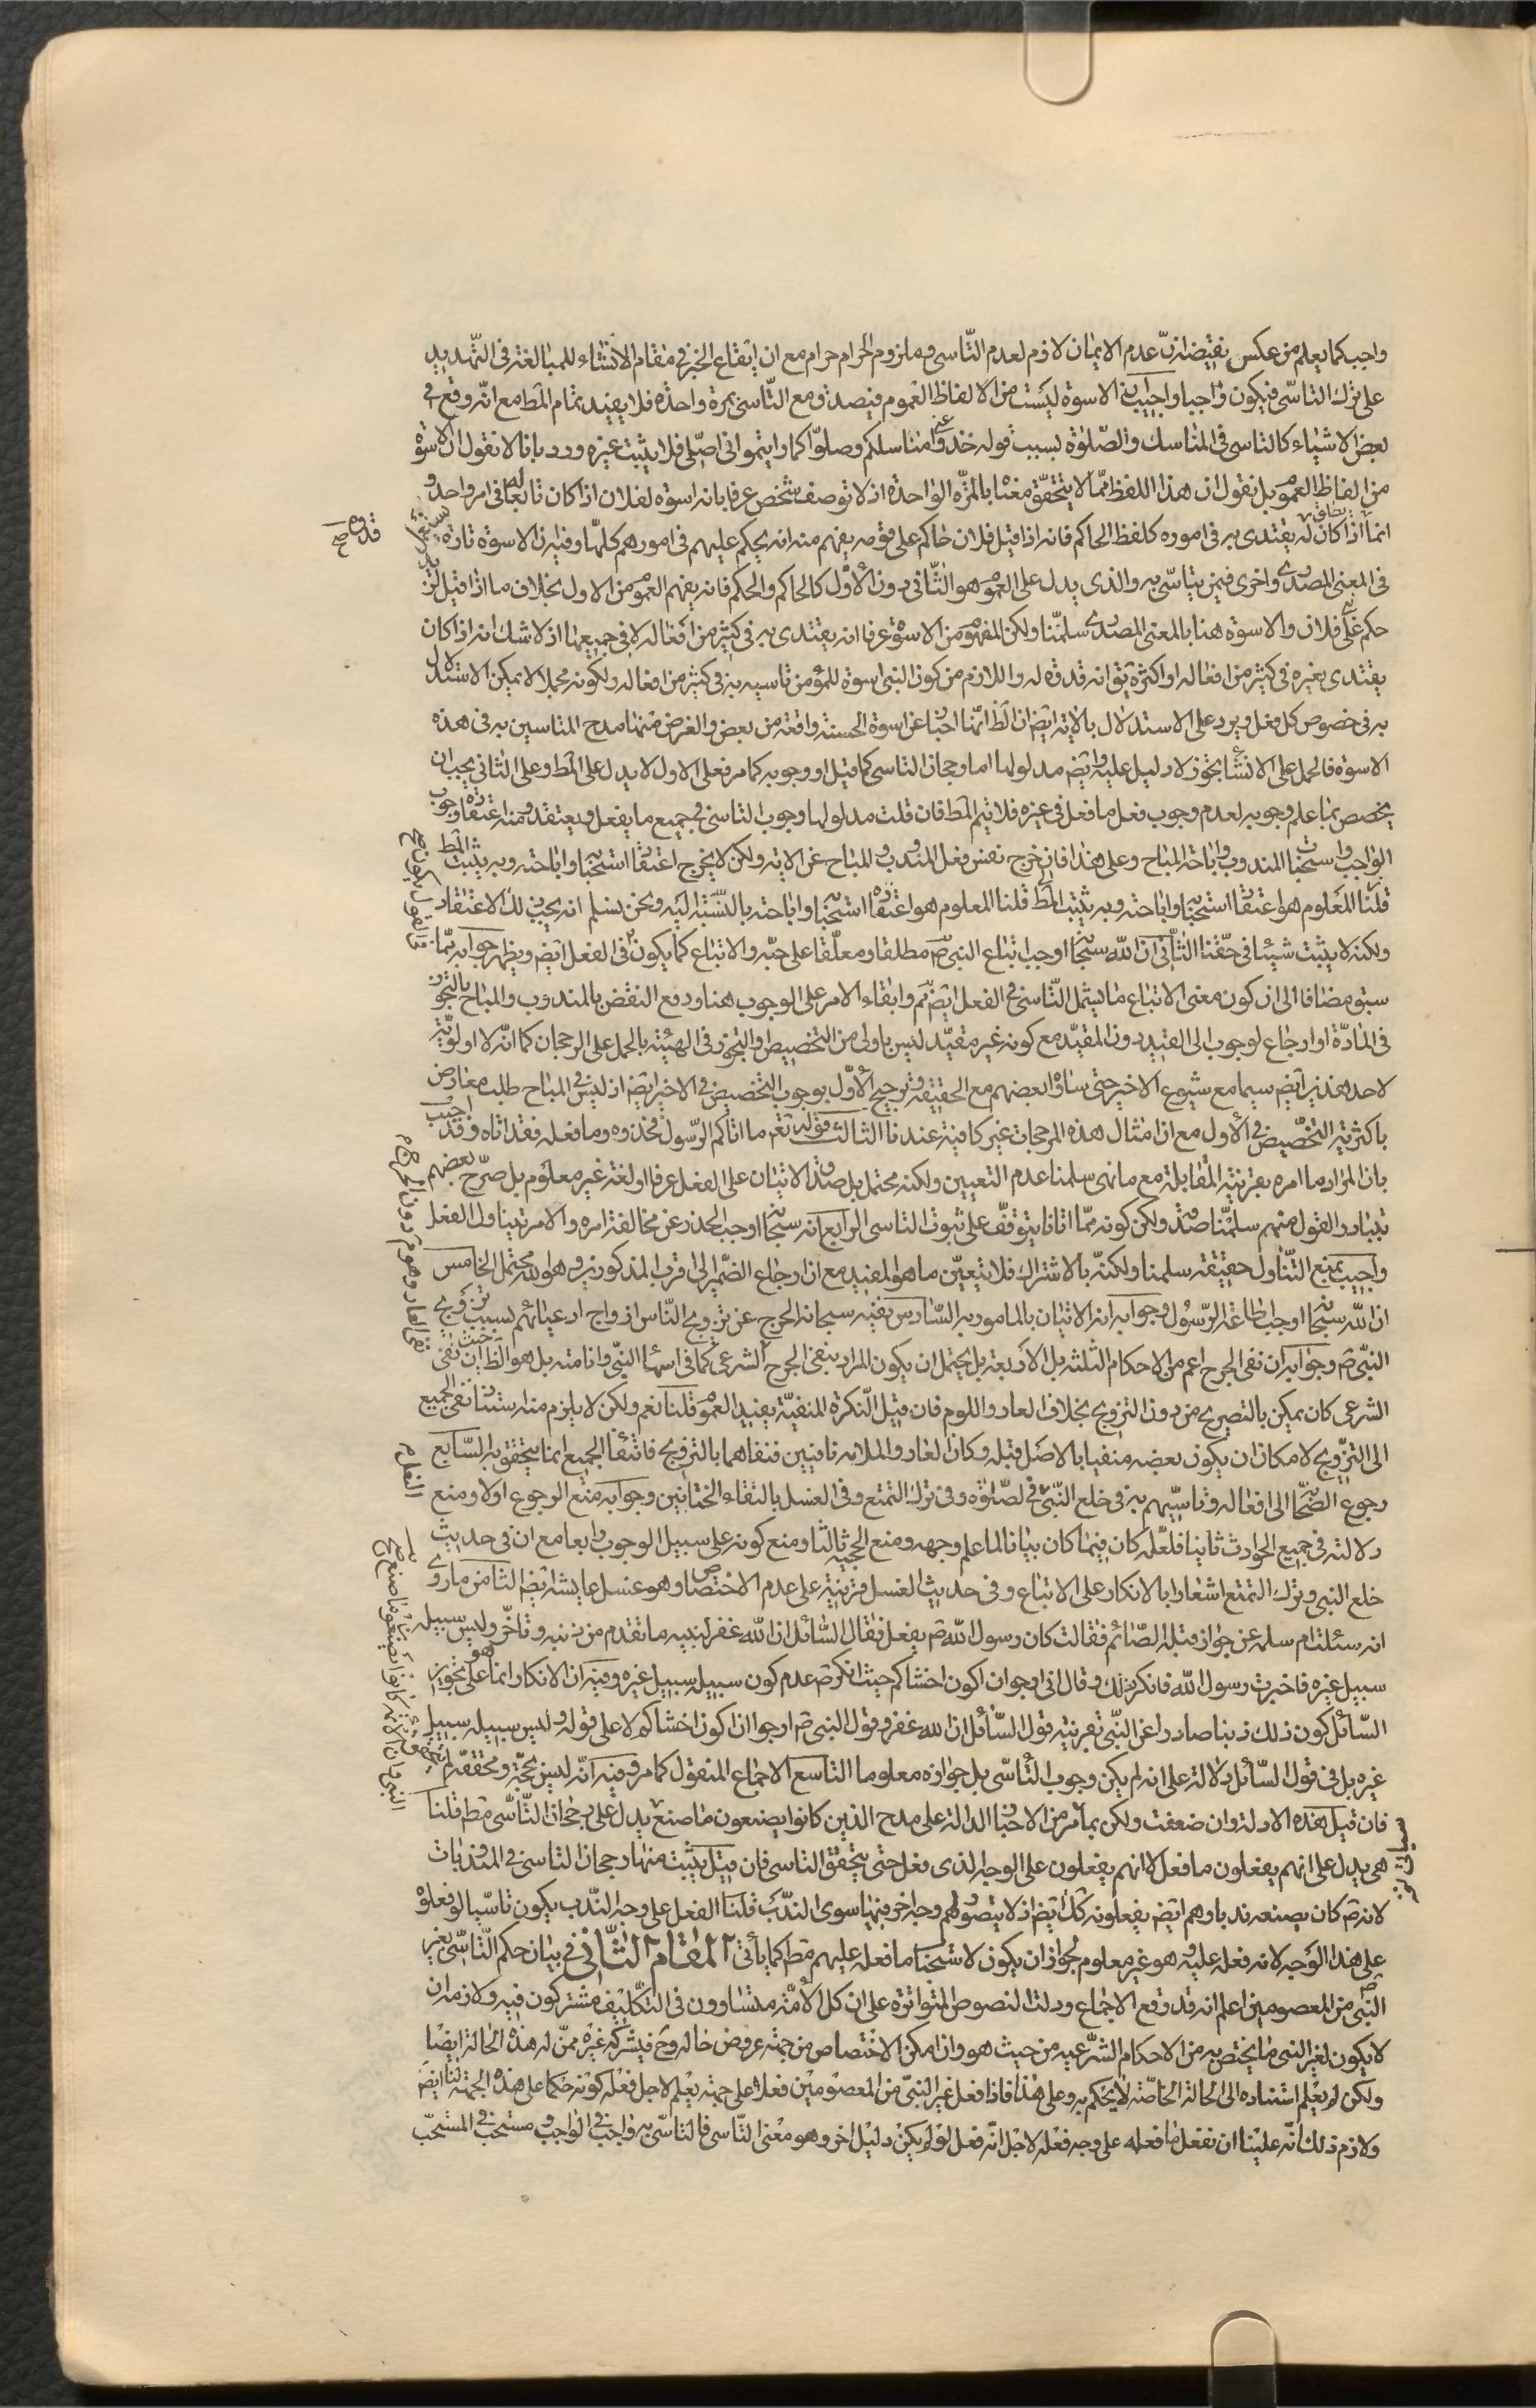 واجب كما يعلم من عكس نقيضه ان عدم الايمان لازم لعدم التّاسى و ملزوم الحرام حرام مع ان ايقاع الخبر فى مقام الانشاء للمبالغة فى التّهديد
على ترك التاسّى فيكون واجبا واجيب بان الاسوة ليست من الالفاظ العموم فيصدق مع التّاسى بمرة واحدة فلا يفيد تمام المط مع انّه وقع فى
بعض الاشياء كالتاسى فى المناسك والصّلوة بسبب قوله خذوا عنى مناسككم وصلوا كما رايتمونى اصلّى فلا يثبت غيره ورد بانا لا نقول ان الاسوة
من الفاظ العموم بل نقول ان هذا اللفظ ممّا لا يتحقّق معناه بالمرّه الواحدة اذ لا توصف شخص عرفا بانه اسوة لفلان اذا كان تابعا له فى امر واحد و
انما يطلق اذا كان له يقتدى به فى اموره كلفظ الحاكم فانه اذا قيل فلان حاكم على قومه يفهم منه انه يحكم عليهم فى امورهم كلّها وفيه ان الاسوة تارة
فى المعنى المصدرى واخرى فيمن يتاسّى به والذى يدل على العموم هو الثّانى دون الأوّل كالحاكم والحكم فانه يفهم العموم من الاول بخلاف ما اذا قيل له
حكم على فلان والاسوة هنا بالمعنى المصدرى سلمنا ولكن المفهوم من الاسوة عرفا انه يقتدى به فى كثير من افعاله لا فى جميعها اذ لا شك انه اذا كان
يقتدى بغيره فى كثير من افعاله او اكثره يق انه قدوة له واللازم من كون النبى اسوة للمؤمن تاسيه به فى كثير من افعاله ولكونه مجملا لا يمكن الاستدلال
به فى خصوص كل فعل ويرد على الاستدلال بالاية ايضا ان الظ انّها اخبار عن اسوة الحسنة واقعة من بعض والغرض منها مدح المتاسين به فى هذه
الاسوة فالحمل على الانشاء تجوز لا دليل عليه وايضا مدلولها اما رجحان التاسى كما قيل او وجوبه كما مر فعلى الاول لا يدل على المط وعلى الثانى يجب ان
يخصص بما علم وجوبه لعدم وجوب فعل ما فعل فى غيره فلا يتم المط فان قلت مدلولها وجوب التاسى فى جميع ما يفعل ويعتقد ومنه اعتقاده وجوب
الواجب واستحباب المندوب واباحة المباح وعلى هذا فان خرج نفس فعل المندوب والمباح عن الاية ولكن لا يخرج اعتقاد استحبابه واباحته وبه يثبت المط
قلنا المعلوم هو اعتقاد استحبابه واباحته وبه يثبت المط قلنا المعلوم هو اعتقاده استحبابه واباحته بالنّسبة اليه ونحن نسلم انه يجب لنا الاعتقاد
ولكنه لا يثبت شيئا فى حقّنا الثّانى ان الله سبحانه اوجب اتباع النبى ص مطلقا ومعلّقا على حبّه والاتباع كما يكون فى الفعل ايضا ويظهر جوابه ممّا
سبق مضافا الى ان كون معنى الاتباع ما يشمل التّاسى فى الفعل ايضا ثم وابقاء الامر على الوجوب هنا ودفع النقض بالمندوب والمباح بالتجوز
فى المادّة او ارجاع لوجوب الى القيد دون المقيّد مع كونه غير مقيّد ليس باولى من التخصيص والتجوز فى الهيئة بالحمل على الرجحان كما انّه لا اولويّة
لاحد هذين ايضا سيما مع شيوع الاخير حتى ساوا بعضهم مع الحقيقة وترجيح الأوّل بوجوب التخصيص فى الاخير ايضا اذ ليس فى المباح طلب معارض
باكثرية التخصيص فى الأول مع ان امثال هذه المرجحات غير كافية عندنا الثالث قوله تعم ما اتاكم الرّسول فخذوه وما فعله فقد اتاه وقد اجيب
بان المراد ما امره بقرينة المقابلة مع ما نهى سلمنا عدم التعيين ولكنه محتمل بل صدق الاتيان على الفعل عرفا او لغة غير معلوم بل صرّح بعضهم
بتبادر القول منهم سلمنا صدق ولكن كونه ممّا اتانا يتوقّف على ثبوت التاسى الرابع انه سبحانه اوجب الحذر عن مخالفة امره والامر يتناول الفعل
واجيب بمنع التّناول حقيقة سلمنا ولكنه بالاشتراك فلا يتعيّن ما هو المفيد مع ان ارجاع الضّمير الى اقرب المذكورين وهو الله محتمل الخامس
ان الله سبحانه اوجب طاعة الرّسول وجوابه انه الاتيان بالمامور به السّادس نفيه سبحانه الحرج عن تزويج النّاس ازواج ادعيائهم بسبب تزويج
النبى ص وجوابه ان نفى الحرج اعم من الاحكام الثلثة بل الاربعة بل يحتمل ان يكون المراد بنفى الحرج الشرعى كما فى اسماء النبى وانامته بل هو الظ حيث ان نفى
الشرعى كان يمكن بالتصريح من دون التزويج بخلاف العار واللوم فان قيل النّكرة المنفيّة يفيد العموم قلنا نعم ولكن لا يلزم منه استناد نفى الجميع
الى التزّويج لامكان ان يكون بعضه منفيا بالاصل قبله وكان العار والملامه باقيين فنفاهما بالتزويج فانتفاء الجميع انما يتحقق به السّابع
رجوع الصّحابة الى افعاله وتاسّيهم به فى خلع النّبى فى الصّلوة وفى ترك التمتع وفى الغسل بالتقاء الختانين وجوابه منع الرجوع اولا ومنع
دلالته فى جميع الحوادث ثانيا فلعله كان فيما كان بيانا لما علم وجهه ومنع الحجية ثالثا ومنع كونه على سبيل الوجوب رابعا مع ان فى حديث
خلع النبى وترك التمتع اشعارا بالانكار على الاتباع وفى حديث الغسل قرينة على عدم الاختصاص وهو غسل عايشة ايضا الثامن ما روى
انه سئلت ام سلمه عن جواز قبلة الصّائم فقالت كان رسول الله ص يفعل فقال السّائل ان الله غفر لنبيه ما تقدم من ذنبه وتاخّر وليس سبيله
سبيل غيره فاخبرت رسول الله فانكر ذلك وقال انى ارجو ان اكون اخشاكم حيث انكر ص عدم كون سبيله سبيل غيره وفيه ان الانكار انما هو على تجويز
السّائل كون ذلك ذنبا صادرا عن النّبى بقرينة قول السّائل ان الله غفر وقول النبى ص ارجوا ان اكون اخشاكم لا على قوله وليس سبيله سبيل
غيره بل فى قول السّائل دلالة على انه لم يكن وجوب التّأسّى بل جوازه معلوما التاسع الاجماع المنقول كما مر وفيه انّه ليس بحجّة ومحققه لم
فان قيل هذه الادلة وان ضعفت ولكن بما مر من الاخبار الدالة على مدح الذين كانوا يصنعون ما صنع يدل على رجحان التّأسّى مط قلنا
هى يدل على انهم يفعلون ما فعل لا انهم يفعلون على الوجه الذى فعل حتى يتحقق التاسى فان قيل يثبت منها رجحان التاسى فى المندوبات
لانه ص كان يصنعه ندبا وهم ايضا يفعلونه كك ايضا اذ لا يتصور لهم وجه اخر فيها سوى الندب قلنا الفعل على وجه النّدب يكون تاسّيا لو فعلوه
على هذا الوجه لانه فعله عليه وهو غير معلوم لجواز ان يكون لاستحباب ما فعله عليهم مط كما يأتى المقام الثّانى فى بيان حكم التّاسّى بغير
النّبى ص من المعصومين اعلم انه قد وقع الاجماع ودلت النصوص المتواترة على ان كل الأمّة متساوون فى التكليف مشتركون فيه ولازمه ان
لا يكون لغير النبى ما يختص به من الاحكام الشّرعيه من حيث هو وان امكن الاختصاص من جهة عروض حالة وح فيشركه غيره ممّن له هذه الحالة ايضا
ولكن لم يعلم استناده الى الحالة الخاصّة لا يحكم به وعلى هذا فاذا فعل غير النّبى من المعصومين فعلا على جهة يعلم لاجل فعله كونه حكما على هذه الجهة لنا ايضا
ولازم ذلك انّه علينا ان نفعل ما فعله على وجه فعله لاجل انّه فعل لو لم يكن دليل اخر وهو معنى التّاسى فالتّاسّى به واجب فى الواجب ومستحب فى المستحبّ